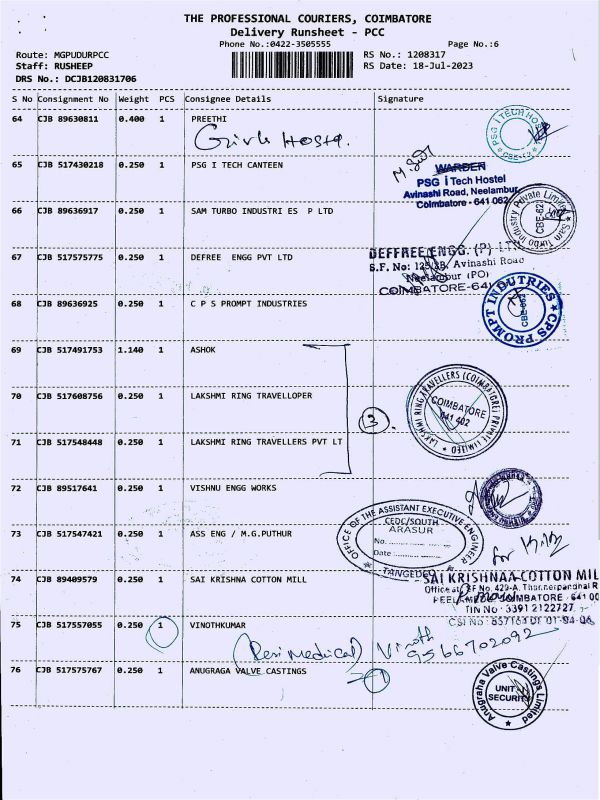 THE PROFESSIONAL COURIERS, COIMBATORE
Delivery Runsheet - PCC
Phone No.:0422-3505555 Page No.:6
Route: MGPUDURPCC RS No.: 1208317
Staff: RUSHEEP RS Date: 18-Jul-2023
DRS No.: DCJB120831706
S No Consignment No Weight PCS Consignee Details Signature
64 CJB 89630811 0.400 1 PREETHI
Girls Hostel.
PSG I TECH HOSTEL
CBE-62
65 CJB 517430218 0.250 1 PSG I TECH CANTEEN
WARDEN
PSG i Tech Hostel
Avinashi Road, Neelambur
Coimbatore - 641 062
66 CJB 89636917 0.250 1 SAM TURBO INDUSTRI ES P LTD
Sam Turbo Industry Private Limited
CBE-62
67 CJB 517575775 0.250 1 DEFREE ENGG PVT LTD
DEFFREE ENGG. (P) LTD
S.F. No: Avinashi Road
Neelambur (PO)
COIMBATORE-641
68 CJB 89636925 0.250 1 C P S PROMPT INDUSTRIES
CPS PROMPT INDUTRIES
CBE-062
69 CJB 517491753 1.140 1 ASHOK
70 CJB 517608756 0.250 1 LAKSHMI RING TRAVELLOPER
3
LAKSHMI RING TRAVELLERS (COIMBATORE) PRIVATE LIMITED
COIMBATORE
641 402
71 CJB 517548448 0.250 1 LAKSHMI RING TRAVELLERS PVT LT
72 CJB 89517641 0.250 1 VISHNU ENGG WORKS
OFFICE OF THE ASSISTANT EXECUTIVE ENGINEER
CEDC/SOUTH
ARASUR
No.
Date
TANGEDCO
73 CJB 517547421 0.250 1 ASS ENG / M.G.PUTHUR
for
74 CJB 89409579 0.250 1 SAI KRISHNA COTTON MILL
SAI KRISHNAA COTTON MIL
Office at: SF No. 429-A,
COIMBATORE - 641 00
TIN NO : 33912122727
75 CJB 517557055 0.250 1 VINOTHKUMAR
Vinoth
9566702092
76 CJB 517575767 0.250 1 ANUGRAGA VALVE CASTINGS
1
Anugraha Valve Castings Limited
UNIT
SECURITY